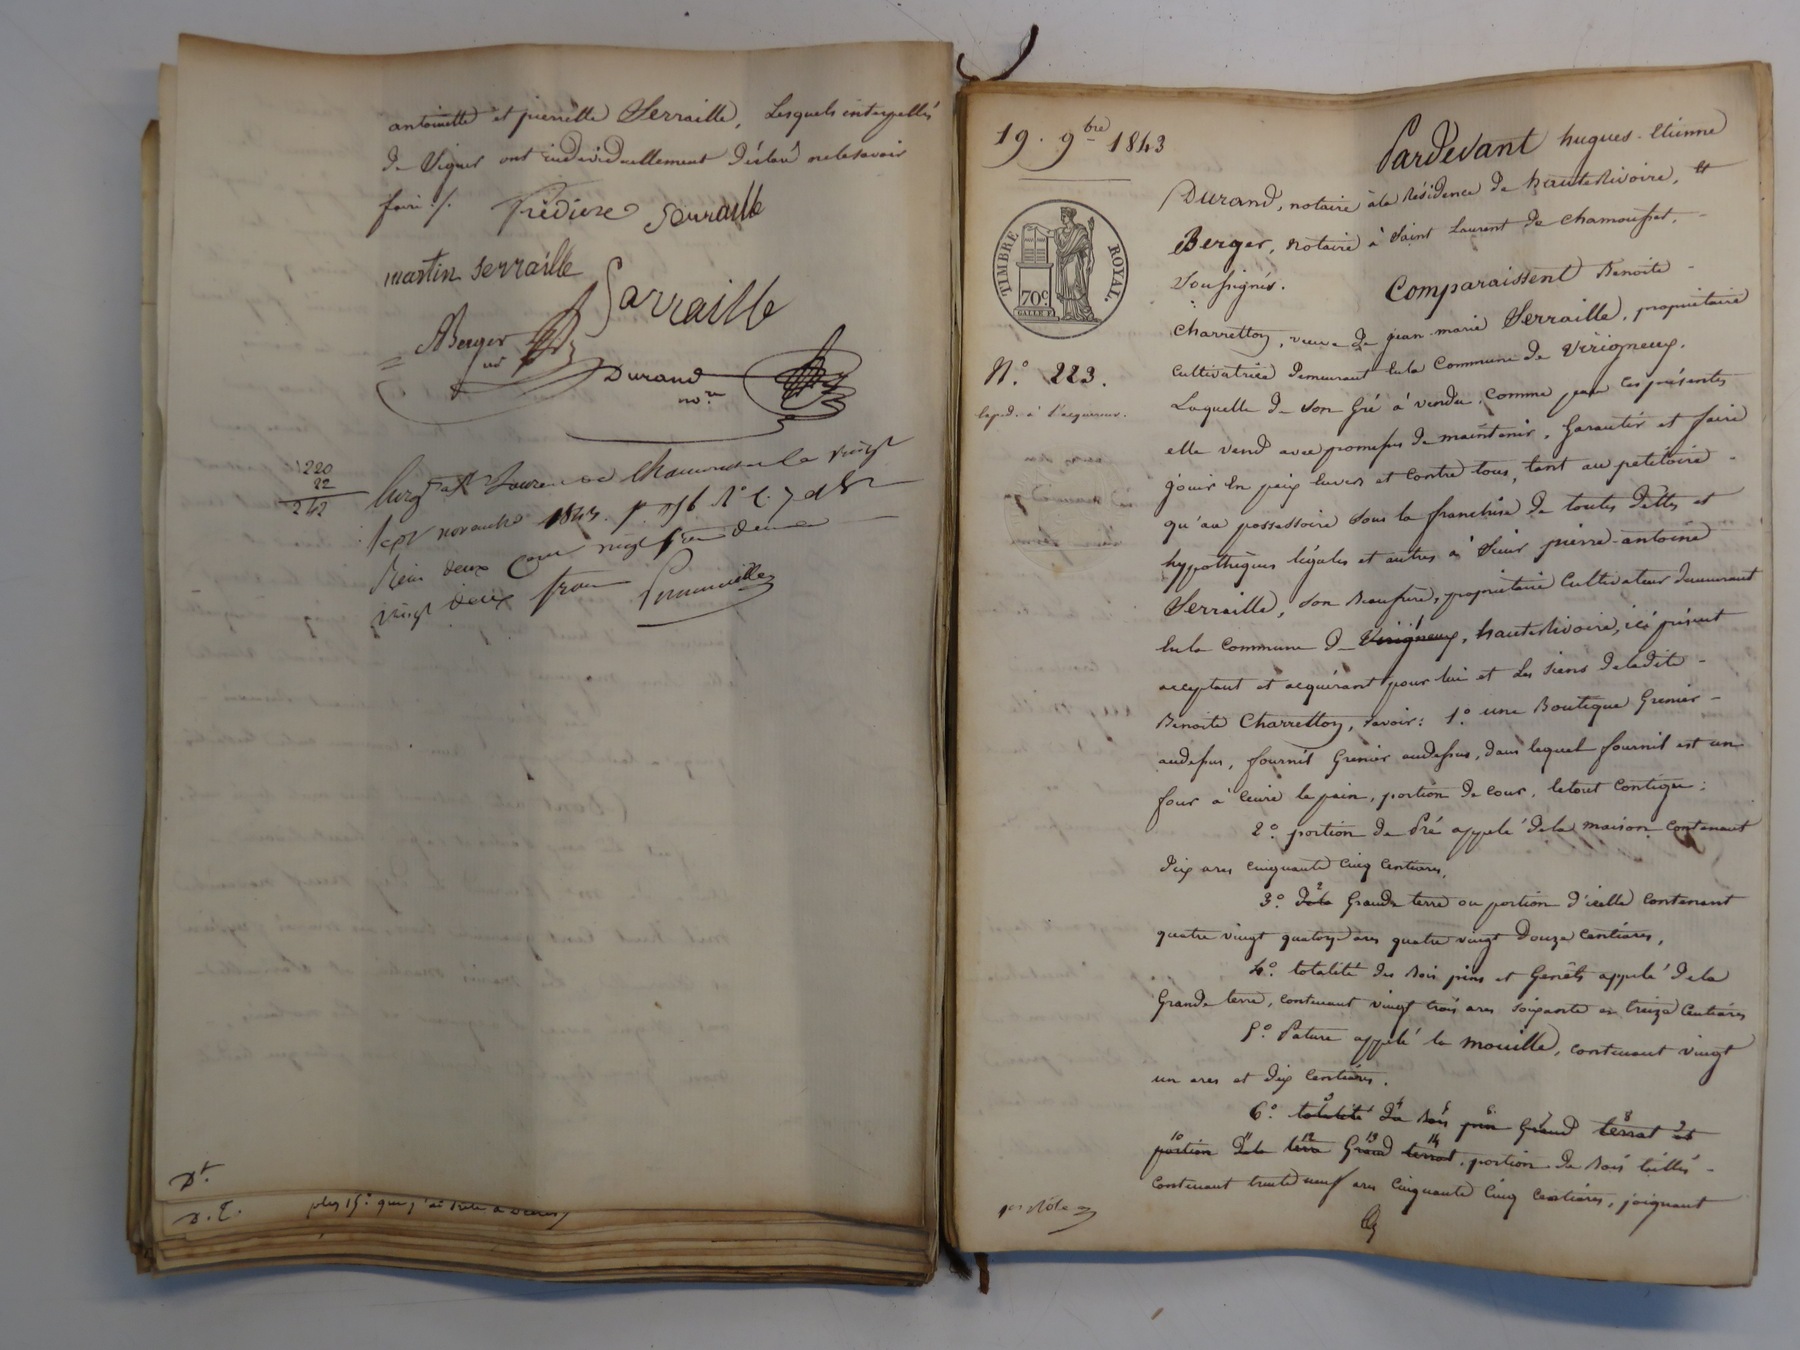 antoinette et pierrette Serraille, Lesquels interpellés
de Signer ont individuellement déclaré ne le savoir
faire ./. Serraille
martin serraille
Sarraille
ABerger
nre
Durand
nore
220
22
242
Laurent de Chamousset le vingt
sept novembre 1843. f.
Reçu deux cent vingt francs
vingt deux francs
Dt.
D. E.
19. 9bre 1843
TIMBRE ROYAL.
70c.
N.o 223.
expéd. à l'acquéreur.
Pardevant hugues-Etienne
Durand, notaire à la Résidence de hauterivoire, et
Berger, Notaire à Saint Laurent de Chamousset,
Soussignés. Comparaissent Benoite
Charretton, veuve de jean-marie Serraille, propriétaire
Cultivatrice demeurant en la Commune de Virigneux.
Laquelle de son Gré a vendu, comme par ces présentes
elle vend avec promesse de maintenir, Garantir et faire
jouir en paix envers et contre tous, tant au petitoire
qu'au possessoire sous la franchise de toutes dettes et
hypothèques légales et autres à Sieur pierre-antoine
Serraille, son Beaufrère, propriétaire Cultivateur demeurant
en la commune de Virigneux, hauterivoire, ici présent
acceptant et acquérant pour lui et les siens de ladite
Benoite Charretton, savoir: 1.o une Boutique Grenier
audessus, fournil Grenier audessus, dans lequel fournil est un
four à cuire le pain, portion de cour, le tout contigu;
2.o portion de Pré appelé de la maison contenant
dix ares cinquante cinq centiares,
3.o de la Grande terre ou portion d'icelle contenant
quatre vingt quatorze ares quatre vingt douze Centiares,
4.o totalité des Bois pins et Genêts appelé de la
Grande terre, contenant vingt trois ares soixante et treize Centiares
5.o Pature appelé la mouille, contenant vingt
un ares et dix Centiares.
6.o totalité du Bois pin Grand terrat et
portion de la terre Grand terrat, portion de Bois taillis
contenant trente neuf ares Cinquante Cinq Centiares, joignant
1er Rôle